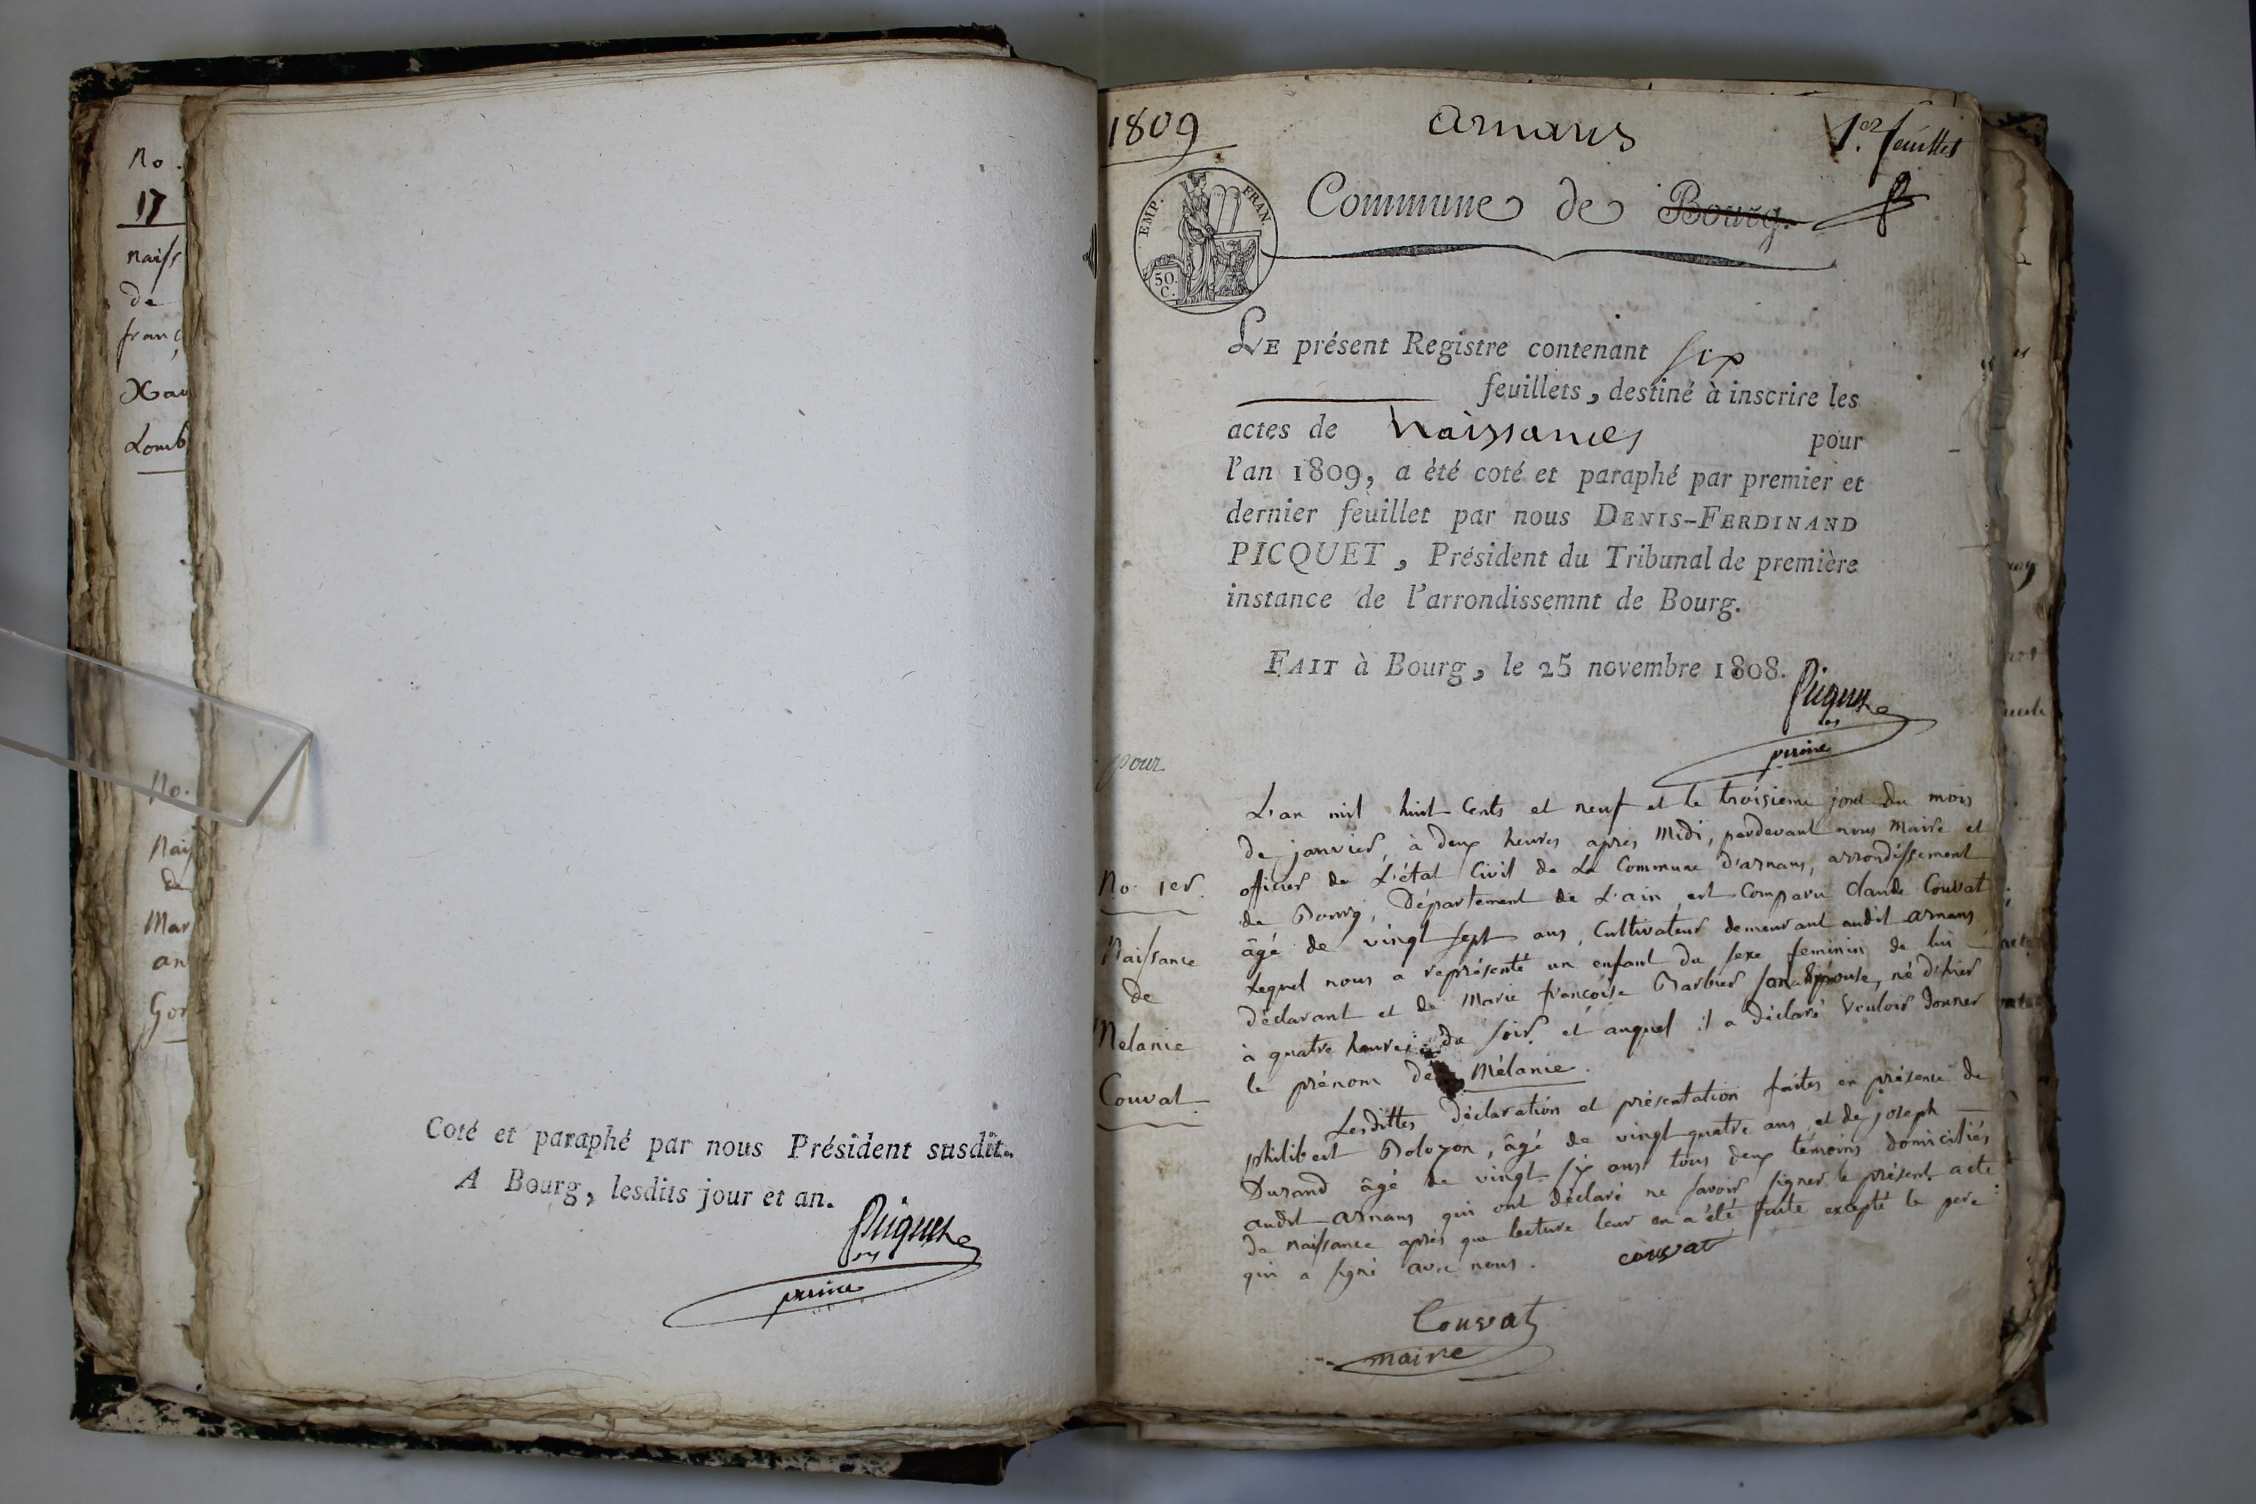 No.
17
naiss
de
franç
Xav
Lomb
No.
Nais
de
Mar
an
Gor
Coté et paraphé par nous Président susdit.
A Bourg, lesdits jour et an.
Picquet
prince
1809
arnans
1er feuillet
EMP. FRAN.
50 C.
Commune de Bourg.
LE présent Registre contenant six
feuillets, destiné à inscrire les
actes de Naissances pour
l'an 1809, a été coté et paraphé par premier et
dernier feuillet par nous DENIS-FERDINAND
PICQUET, Président du Tribunal de première
instance de l'arrondissemnt de Bourg.
FAIT à Bourg, le 25 novembre 1808.
Picquet
prince
pour
No. 1er.
Naissance
de
Melanie
Couvat
L'an mil huit Cents et neuf et le troisieme jour du mois
de janvier, à deux heures après Midi, pardevant nous Maire et
officier de L'état Civil de La Commune d'arnans, arrondissement
de Bourg, Département de L'ain, est Comparu Claude Couvat
âgé de vingt sept ans, Cultivateur demeurant audit arnans
Lequel nous a représenté un enfant du sexe feminin de lui
déclarant et de Marie françoise Barbier son Epouse, né d'hier
à quatre heures du soir et auquel il a déclaré Vouloir donner
le prénom de Mélanie.
Lesdittes déclaration et présentation faites en présence de
philibert Bolozon, âgé de vingt quatre ans, et de joseph
Durand âgé de vingt six ans tous deux témoins domiciliés
audit arnans qui ont déclaré ne savoir signer le présent acte
de naissance après que lecture leur en a été faite excepté le pere
qui a signé avec nous. couvat
Couvat
maire